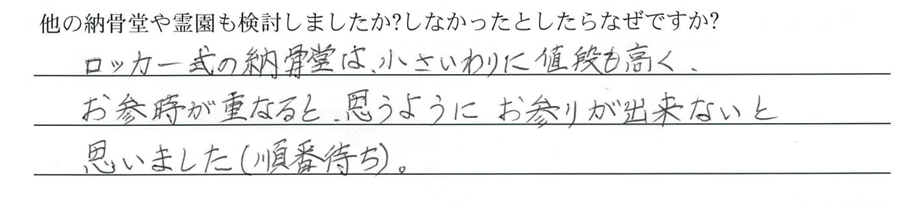 他の納骨堂や霊園も検討しましたか?しなかったとしたらなぜですか?
ロッカー式の納骨堂は、小さいわりに値段も高く、
お参時が重なると、思うように お参りが出来ないと
思いました(順番待ち)。